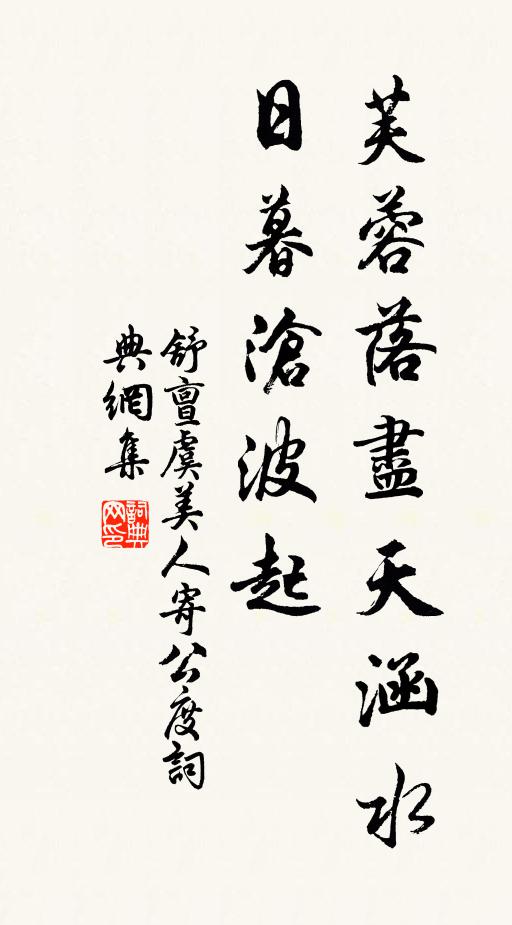 芙蓉落盡天涵水
日暮滄波起
舒亶虞美人寄公度詞
典網集
詞典
网印